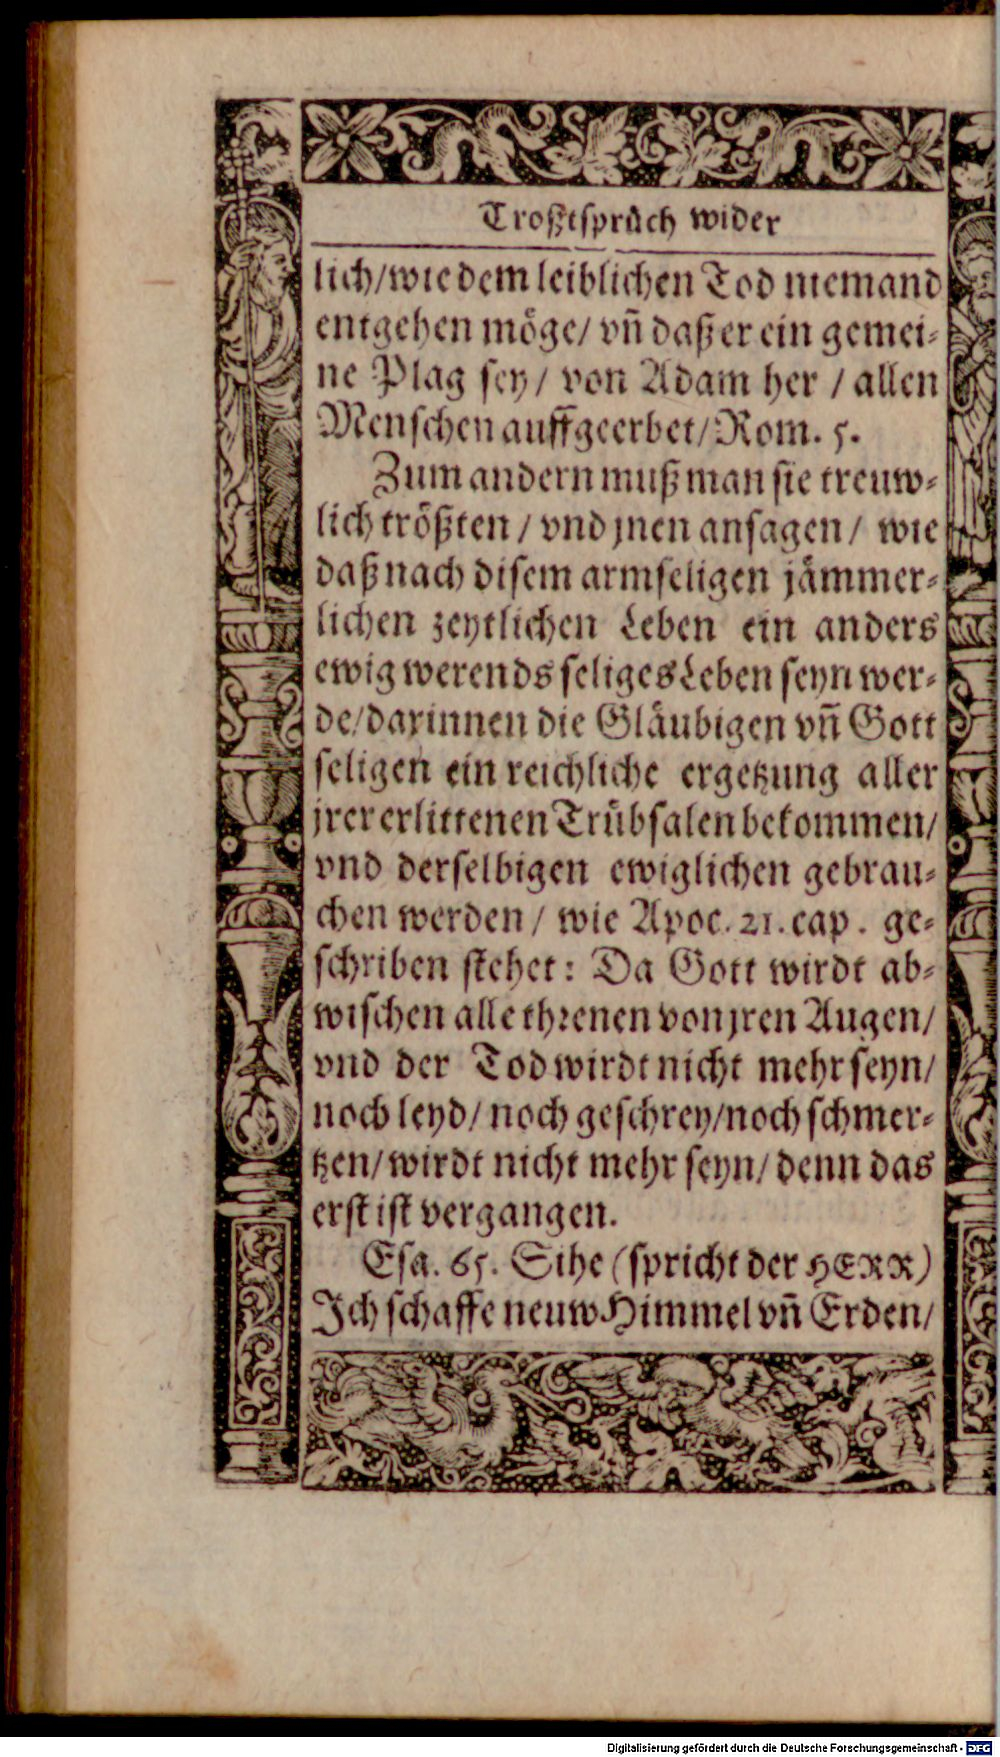 Troßtsprüch wider
lich/wie dem leiblichen Tod niemand
entgehen möge/ vñ daß er ein gemei-
ne Plag sey/ von Adam her / allen
Menschen auffgeerbet/Rom. 5.
Zum andern muß man sie treuw-
lich trößten / vnd jnen ansagen/ wie
daß nach disem armseligen jämmer-
lichen zeytlichen Leben ein anders
ewig werends seliges Leben seyn wer-
de/darinnen die Gläubigen vñ Gott
seligen ein reichliche ergetzung aller
jrer erlittenen Trübsalen bekommen/
vnd derselbigen ewiglichen gebrau-
chen werden / wie Apoc. 21. cap. ge-
schriben stehet: Da Gott wirdt ab-
wischen alle threnen von jren Augen/
vnd der Tod wirdt nicht mehr seyn/
noch leyd/ noch geschrey/noch schmer-
tzen/wirdt nicht mehr seyn/ denn das
erst ist vergangen.
Esa. 65. Sihe (spricht der HERR)
Ich schaffe neuw Himmel vñ Erden/
Digitalisierung gefördert durch die Deutsche Forschungsgemeinschaft - DFG